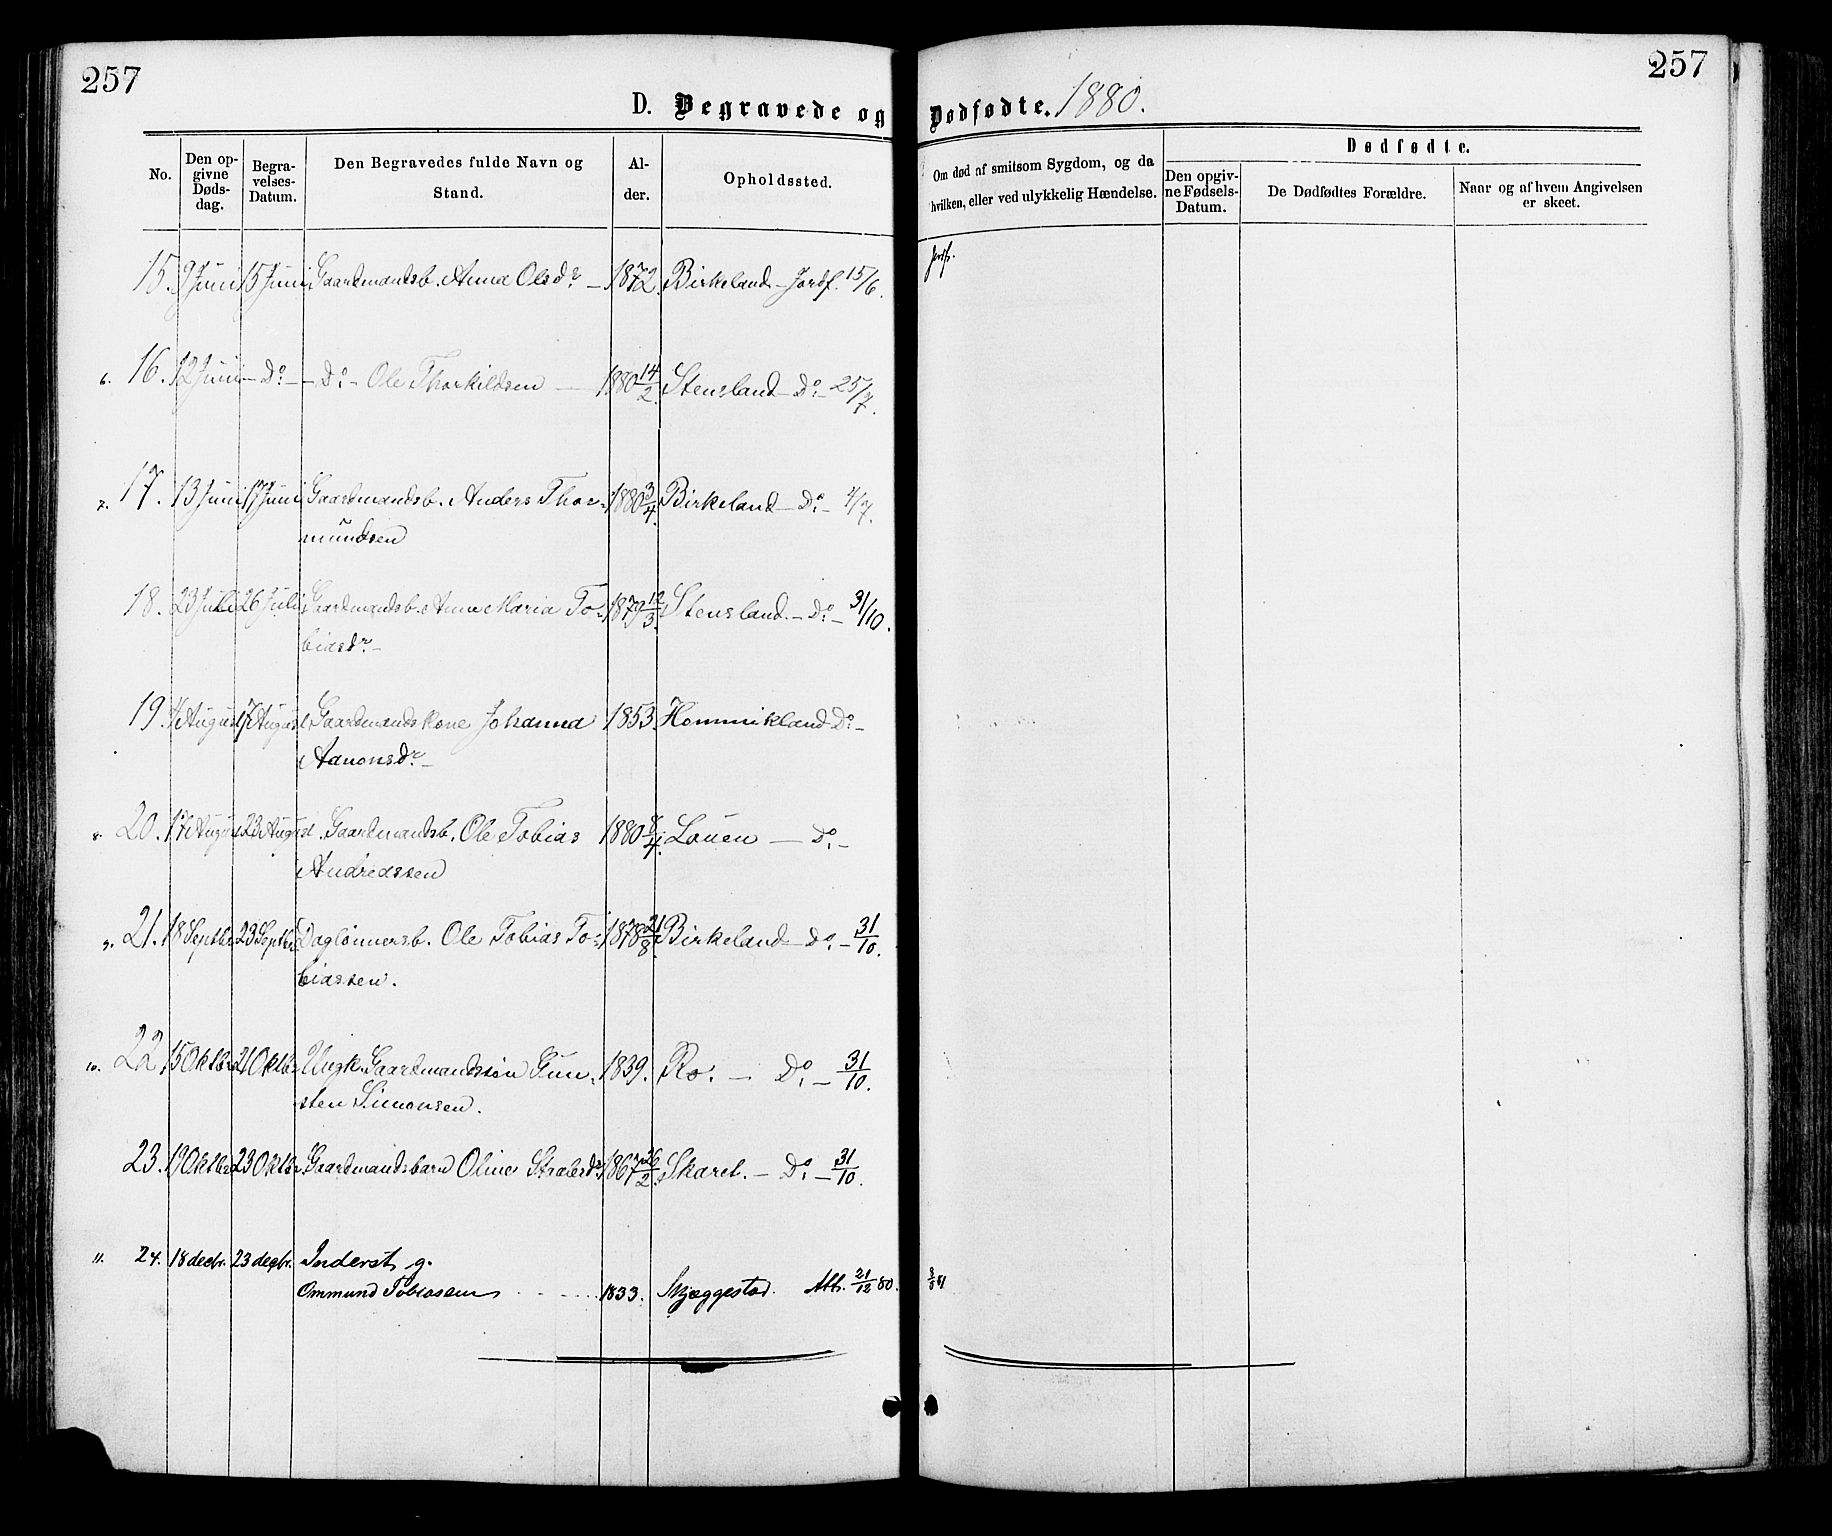 257
257
D. Begravede og Dødfødte. 1880.
No.
Den opgivne Dødsdag.
Begravelses-Datum.
Den Begravedes fulde Navn og Stand.
Alder.
Opholdssted.
Om død af smitsom Sygdom, og da hvilken, eller ved ulykkelig Hændelse.
Dødfødte.
Den opgivne Fødsels-Datum.
De Dødfødtes Forældre.
Naar og af hvem Angivelsen er skeet.
15. 9 Juni 15 Juni Gaardmandsb. Anna Olsdr. – 1872. Birkeland – Jordf. 15/6. Jordf.
6. 16. 12 Juni – Do. – – Do. – Ole Thorkildsen – 1880 14/2. Stensland – Do. – 25/7.
7. 17. 13 Juni 17 Juni Gaardmandsb. Anders Thor- 1880 3/4. Birkeland – Do. – 4/7.
mundsen
18. 23 Juli 26 Juli Gaardmandsb. Anne Maria To- 1879 12/3. Stensland. – Do. – 31/10.
biasdr. –
19. August 7 August Gaardmandskone Johanna 1853. Hommikland Do. –
Aanonsdr. –
8. 20. 17 August 23 August. Gaardmandsb. Ole Tobias 1880 8/4. Louen – Do. –
Andreassen
9. 21. 18 Septbr 23 Septbr Daglønnersb. Ole Tobias To- 1878 21/8. Birkeland – Do. – 31/10.
biassen.
10. 22. 15 Oktbr 21 Oktbr. Ungk. Gaardmandssøn Gun- 1839. Ro. – Do. – 31/10.
sten Simonsen.
23. 19 Oktbr 23 Oktbr. Gaardmandsbarn Oline 1867 26/2. Skaret. – Do. – 31/10.
11. 24. 18 decbr. 23 decbr. Inderst g.
Ommund Tobiassen 1833. Skjæggestad. Att. 21/12 80.